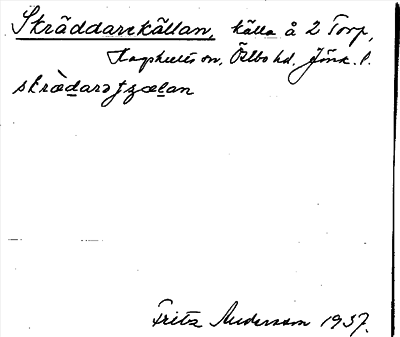 Skräddarekällan, källa å 2 Torp,
Hagshults sn, Östbo hd. Jönk. l.
skrädarə tʒælan
Fritz Andersson 1937.